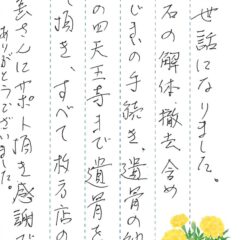 世話になりました。
石の解体撤去含め
じまいの手続き。遺骨の
の四天王寺まで遺骨を
て頂き、すべて枚方店の
長さんにサポート頂き感謝で
ありがとうございました。